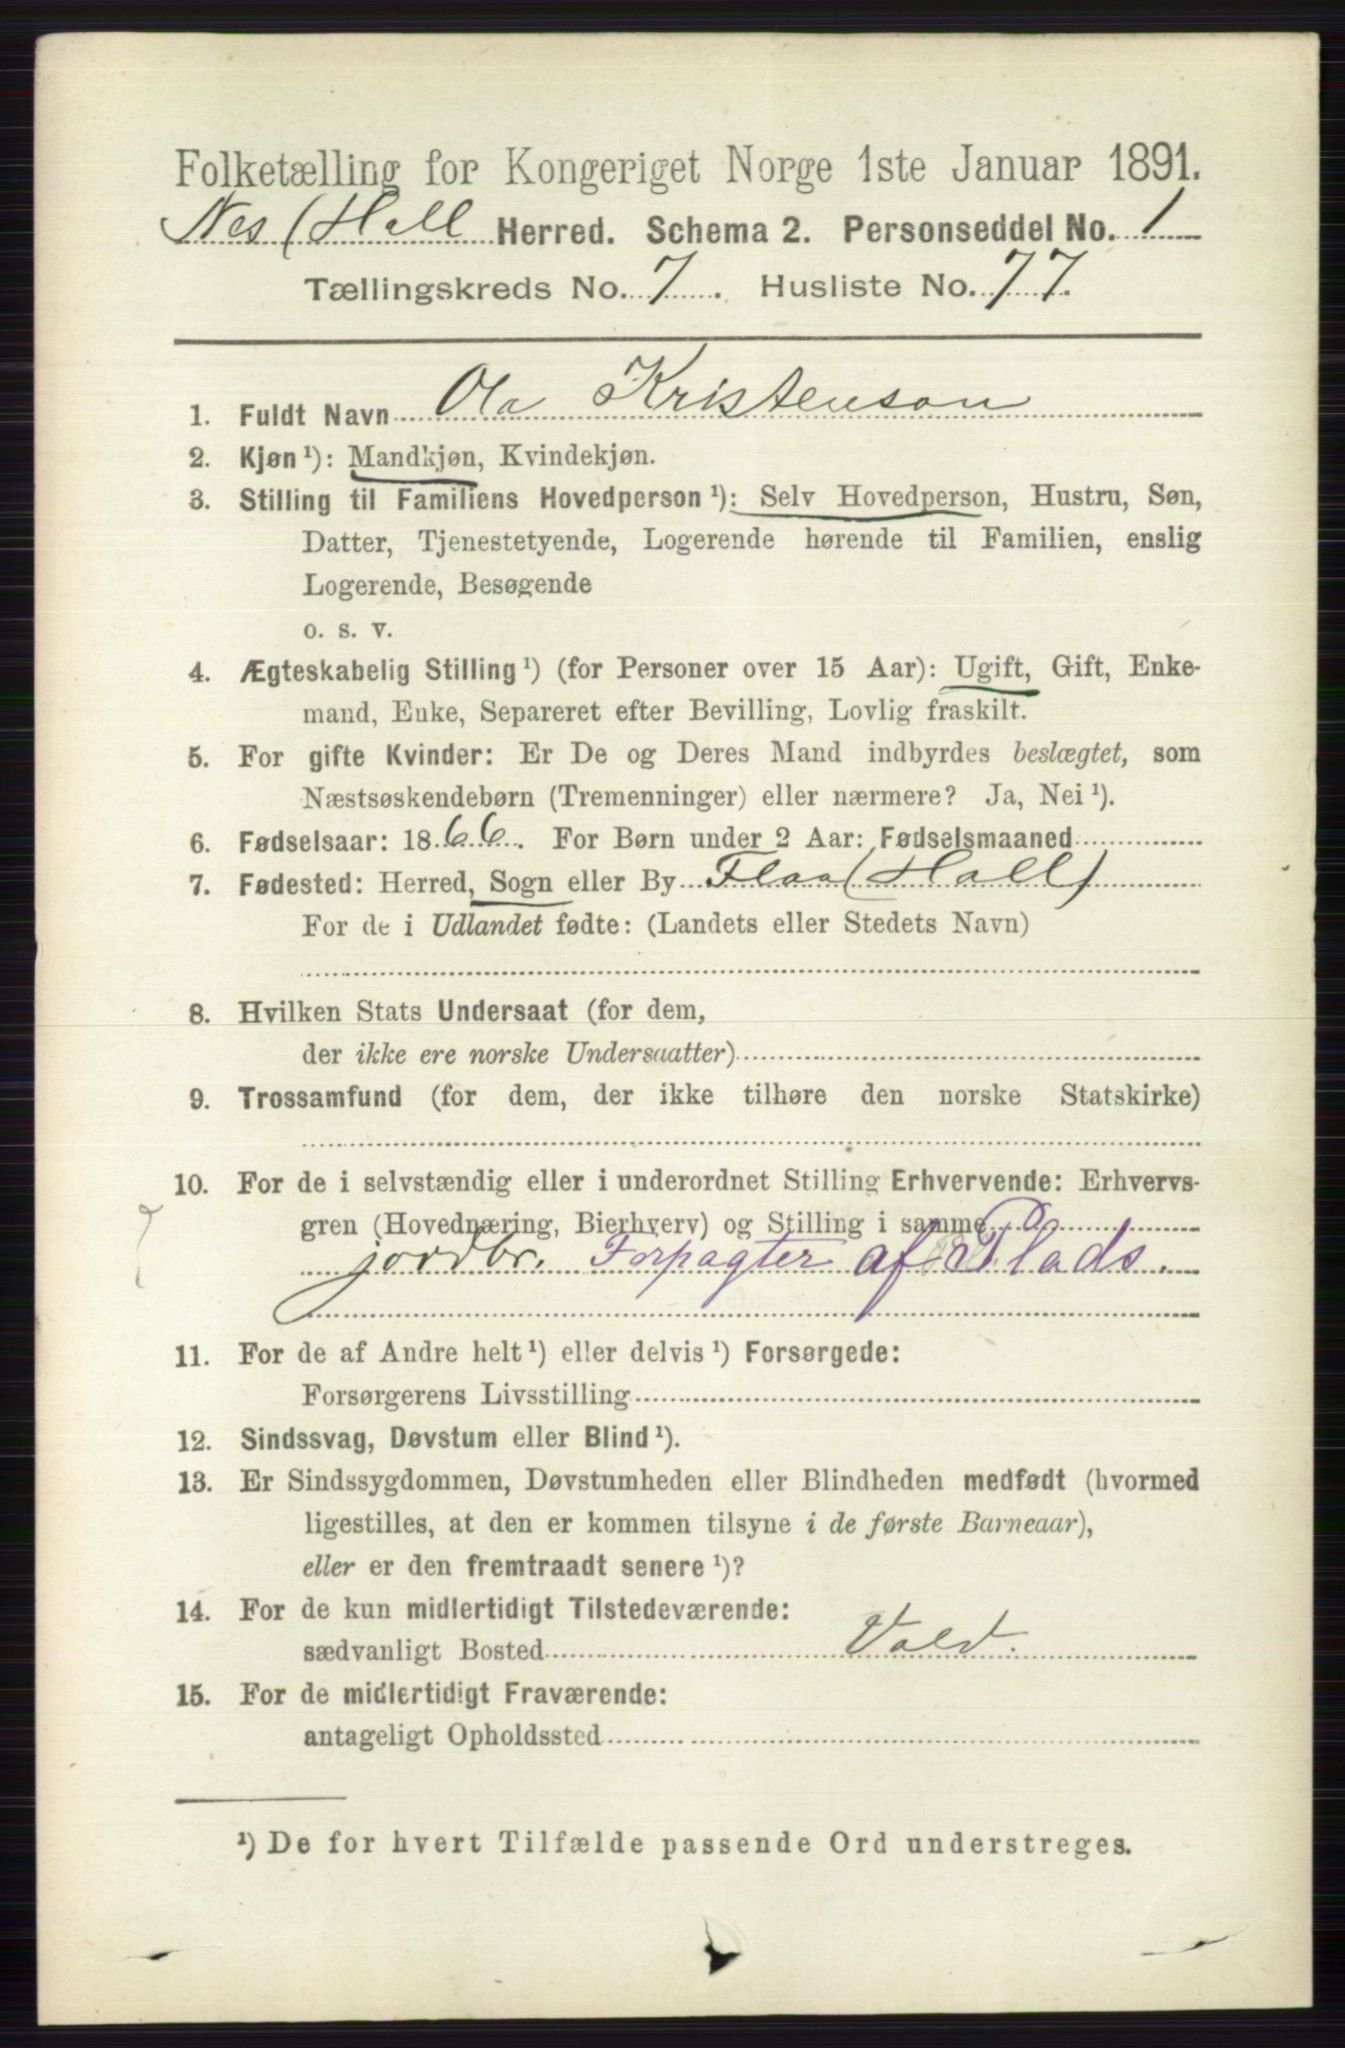 Folketælling for Kongeriget Norge 1ste Januar 1891.
Nes (Hall Herred. Schema 2. Personseddel No. 1
Tællingskreds No. 7. Husliste No. 77.
1. Fuldt Navn Ola Kristenson
2. Kjøn¹): Mandkjøn, Kvindekjøn.
3. Stilling til Familiens Hovedperson¹): Selv Hovedperson, Hustru, Søn,
Datter, Tjenestetyende, Logerende hørende til Familien, enslig
Logerende, Besøgende
o. s. v.
4. Ægteskabelig Stilling¹) (for Personer over 15 Aar): Ugift, Gift, Enke-
mand, Enke, Separeret efter Bevilling, Lovlig fraskilt.
5. For gifte Kvinder: Er De og Deres Mand indbyrdes beslægtet, som
Næstsøskendebørn (Tremenninger) eller nærmere? Ja, Nei¹).
6. Fødselsaar: 1866. For Børn under 2 Aar: Fødselsmaaned
7. Fødested: Herred, Sogn eller By Flaa (Hall)
For de i Udlandet fødte: (Landets eller Stedets Navn)
8. Hvilken Stats Undersaat (for dem,
der ikke ere norske Undersaatter)
9. Trossamfund (for dem, der ikke tilhøre den norske Statskirke)
10. For de i selvstændig eller i underordnet Stilling Erhvervende: Erhvervs-
gren (Hovednæring, Bierhverv) og Stilling i samme
jordbr. Forpagter af Plads.
11. For de af Andre helt¹) eller delvis¹) Forsørgede:
Forsørgerens Livsstilling
12. Sindssvag, Døvstum eller Blind¹).
13. Er Sindssygdommen, Døvstumheden eller Blindheden medfødt (hvormed
ligestilles, at den er kommen tilsyne i de første Barneaar),
eller er den fremtraadt senere¹)?
14. For de kun midlertidigt Tilstedeværende:
sædvanligt Bosted Vold.
15. For de midlertidigt Fraværende:
antageligt Opholdssted
¹) De for hvert Tilfælde passende Ord understreges.